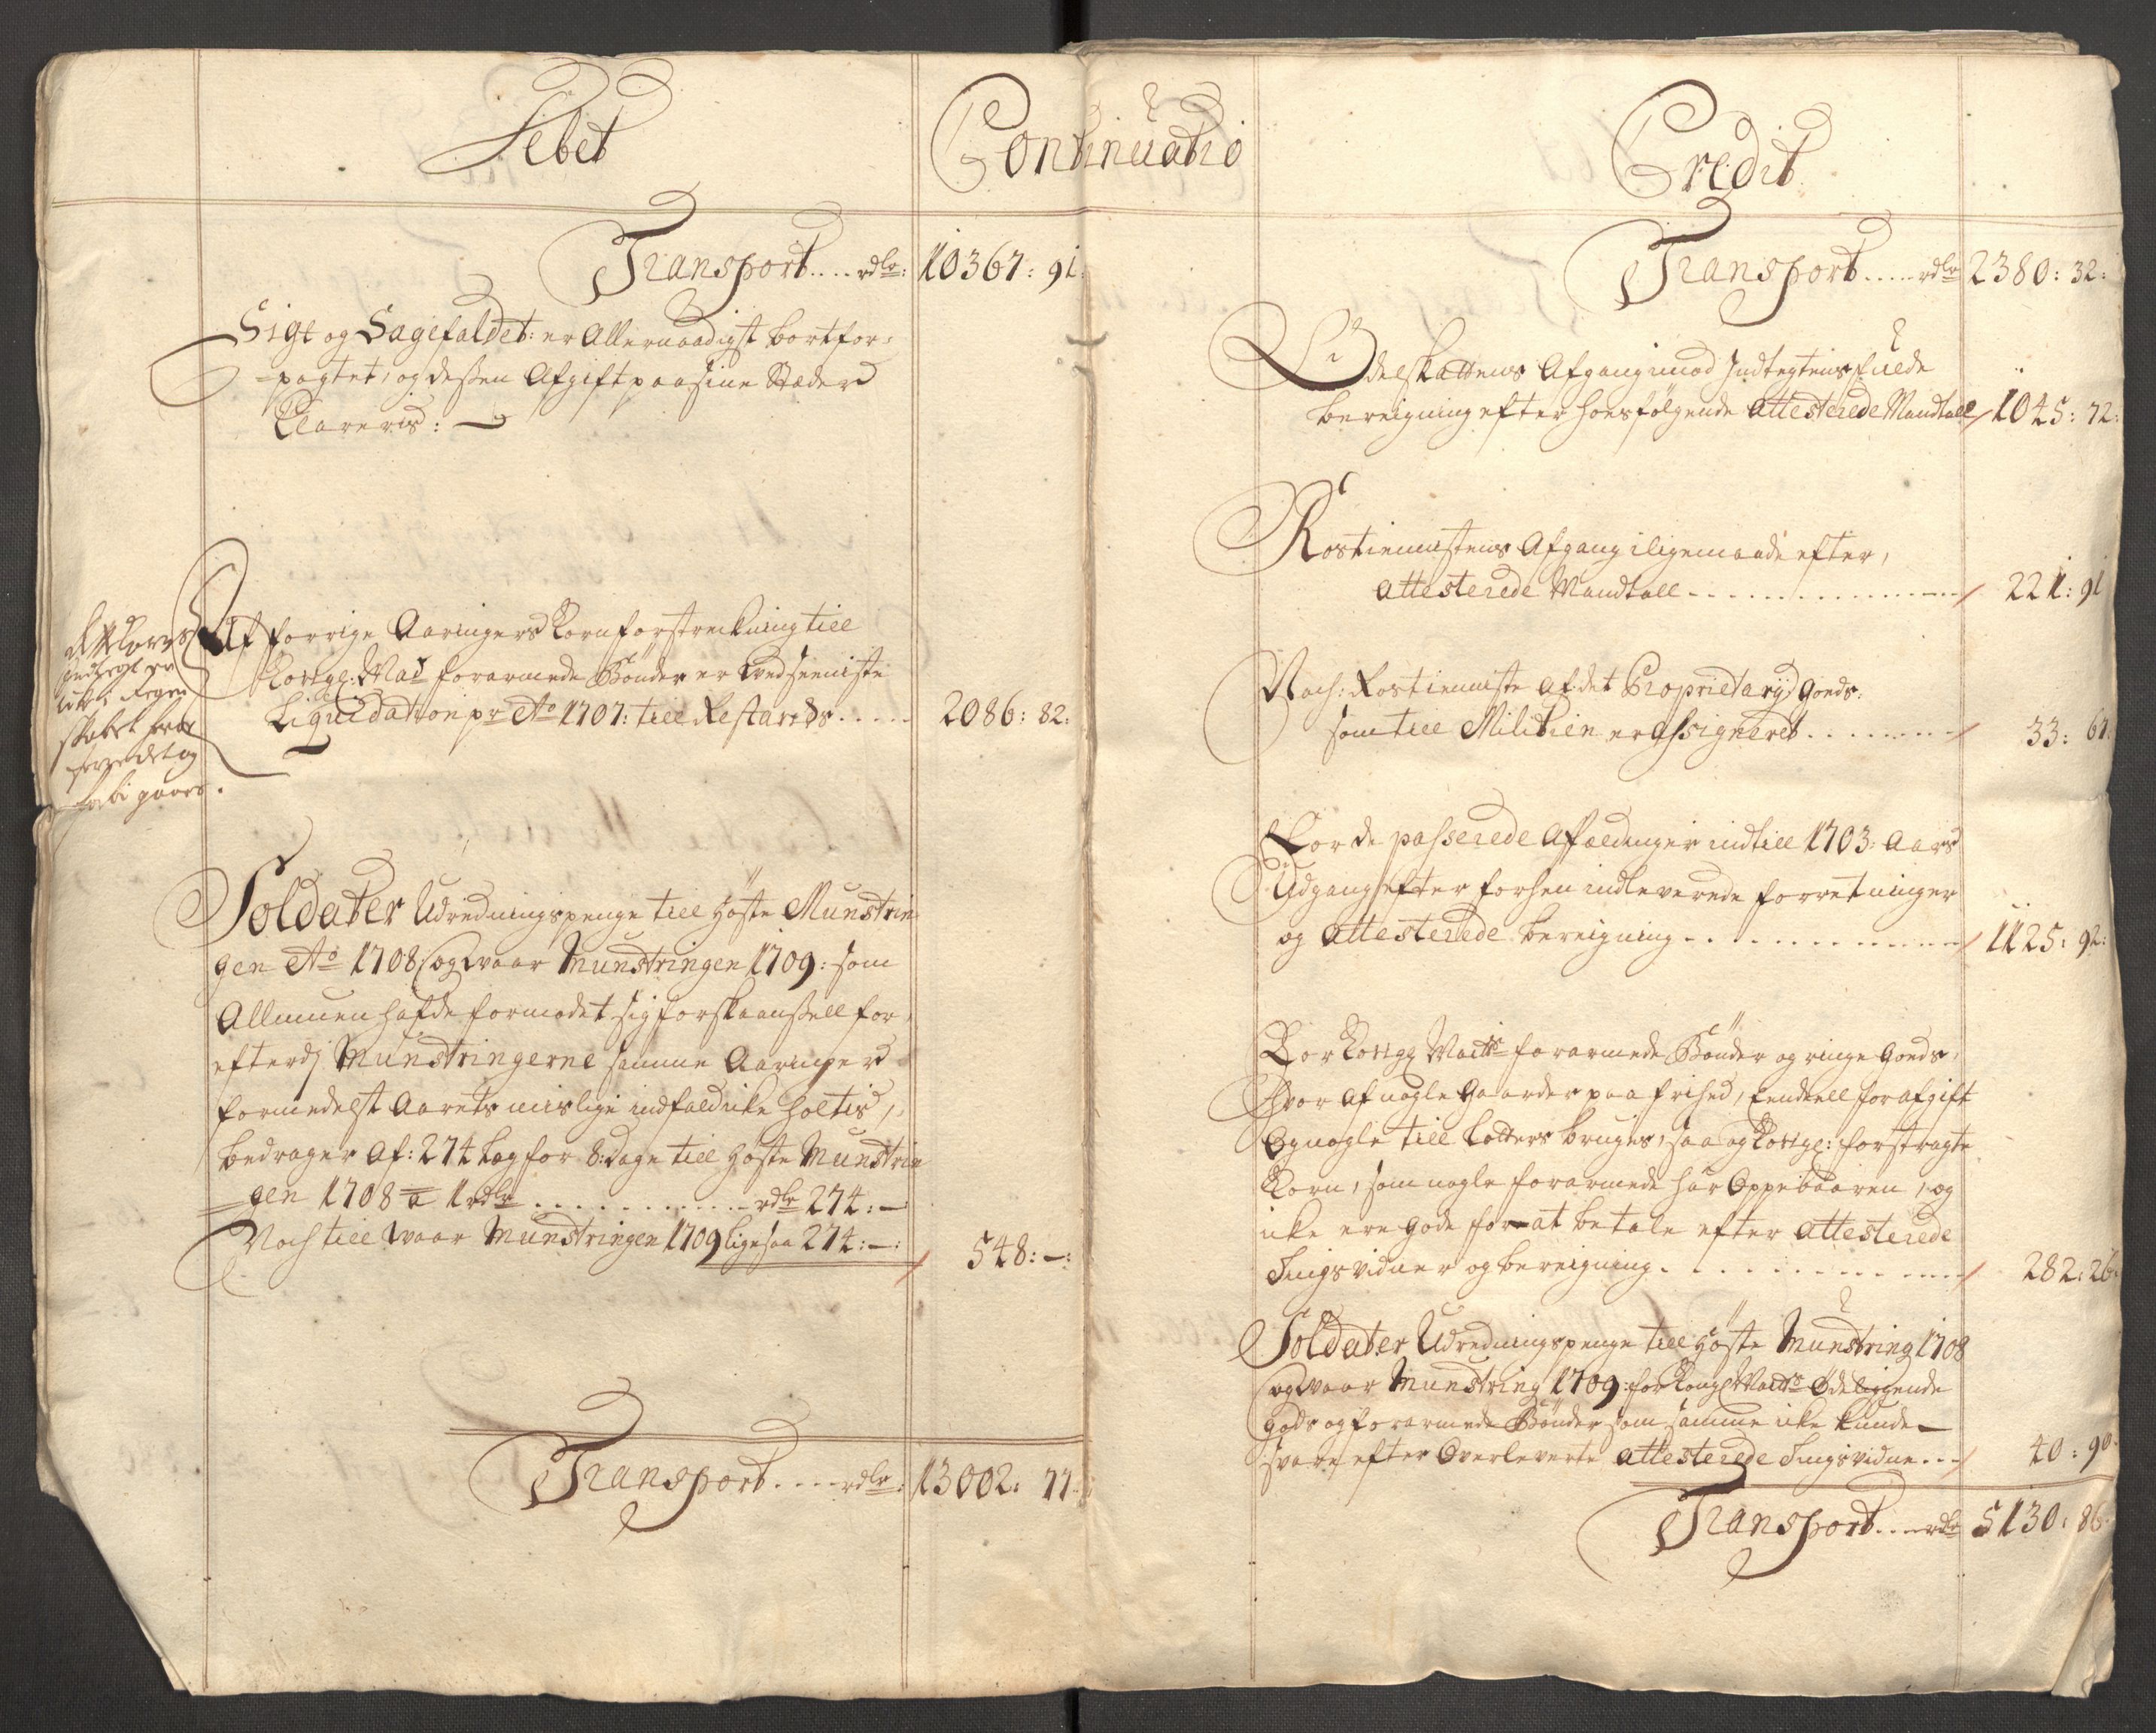 Debet
Continuatio
Transport.... rdlr: 10367: 91:
Sigt og Sagefaldet: er Allernaadigst bortfor-
-pagtet, og dessen Afgift paa sine Stæder
Clareris: —
Af forrige Aaringers Kornforstreckning till
Kongl: Mas forarmede Bönder er ved seeniste
Liquidation pr Ao 1707: till Restands..... 2086: 82:
skabet
Soldater Udredningspenge till Höste Munstrin
gen Ao 1708 og Vaar Munstringen 1709: som
Allmuen hafde formodet sig forskaanssell for,
efterdj Munstringerne samme Aaringer
formedelst Aarets mislige indfald icke holtis,
bedrager Af: 274 Læg for 8: dage till Höste Munstrin
-gen 1708 a 1 rdlr ........... rdlr 274: —
Noch till Vaar Munstringen 1709 ligesaa 274: —: 548: —:
Transport.... rdlr: 13002: 77:
Credit
Transport.... rdlr 2380: 32:
Odelskattens Afgang imod Indtegtens fulde
bereigning efter hoesfølgende Attesterede Mandtall 1045: 72:
Rostienistens Afgang i ligemaade efter,
Attesterede Mandtall .............. 221: 91
Noch: Rostienniste af det Proprietarij Goeds.
som till Militien er Assigneret ........ 33: 67.
For de passerede Affældinger indtill 1703: Aars
Udgang efter forhen indleverede forretninger
og Attesterede bereigning ............. 1125: 92:
For Kongl Maitts forarmede Bönder og ringe Goeds,
hvor af nogle Gaarder paa frihed, Eendeell for afgift
Og nogle till Lotters bruges, saa og Kongl: forstragte
Korn, som nogle forarmede har Oppebaaren, og
icke ere gode for at betale efter Attesterede
Tingsvidner og bereigning ............. 282: 26.
Soldater Udredningspenge till Höste Munstring 1708
og Vaar Munstring 1709: for Kongl Maitts Ødeliggende
gods og forarmede Bönder som samme icke kunde
svare, efter Overleverte Attesterede Tingsvidne... 40: 90.
Transport.... rdlr 5130: 86.